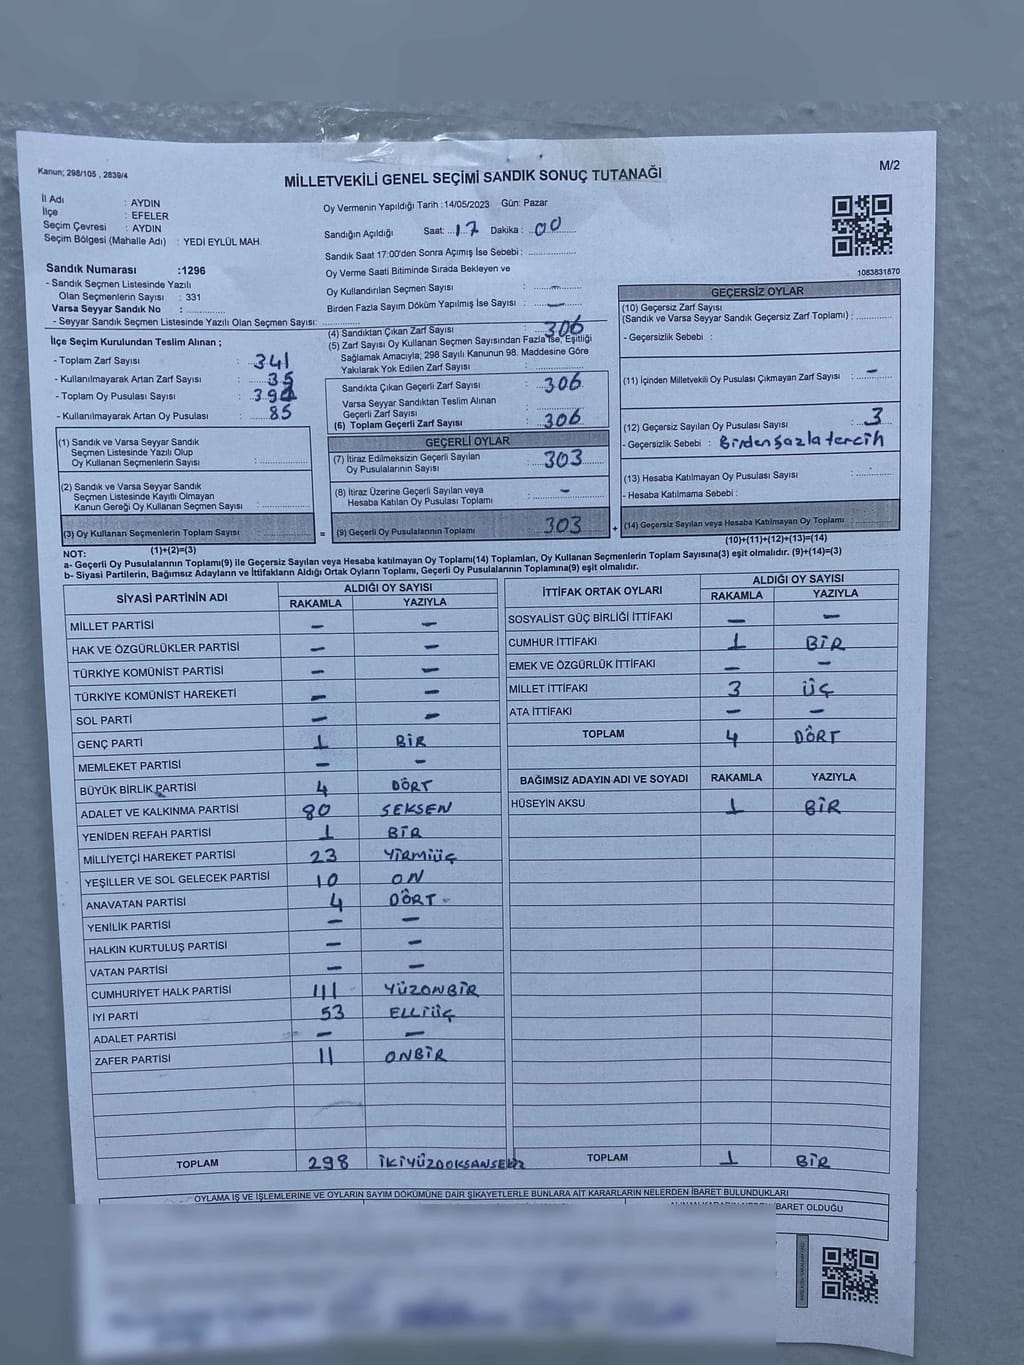 Kanun; 298/105 , 2839/4
M/2
MİLLETVEKİLİ GENEL SEÇİMİ SANDIK SONUÇ TUTANAĞI
İl Adı : AYDIN
İlçe : EFELER
Seçim Çevresi : AYDIN
Seçim Bölgesi (Mahalle Adı) : YEDİ EYLÜL MAH.
Sandık Numarası :1296
- Sandık Seçmen Listesinde Yazılı
Olan Seçmenlerin Sayısı : 331
Varsa Seyyar Sandık No :
- Seyyar Sandık Seçmen Listesinde Yazılı Olan Seçmen Sayısı:
Oy Vermenin Yapıldığı Tarih :14/05/2023 Gün: Pazar
Sandığın Açıldığı Saat: 17 Dakika : 00
Sandık Saat 17:00'den Sonra Açımış İse Sebebi :
Oy Verme Saati Bitiminde Sırada Bekleyen ve
Oy Kullandırılan Seçmen Sayısı : -
Birden Fazla Sayım Döküm Yapılmış İse Sayısı : -
1083831870
İlçe Seçim Kurulundan Teslim Alınan ;
- Toplam Zarf Sayısı : 341
- Kullanılmayarak Artan Zarf Sayısı : 35
- Toplam Oy Pusulası Sayısı :
- Kullanılmayarak Artan Oy Pusulası : 85
(1) Sandık ve Varsa Seyyar Sandık
Seçmen Listesinde Yazılı Olup
Oy Kullanan Seçmenlerin Sayısı :
(2) Sandık ve Varsa Seyyar Sandık
Seçmen Listesinde Kayıtlı Olmayan
Kanun Gereği Oy Kullanan Seçmen Sayısı :
(3) Oy Kullanan Seçmenlerin Toplam Sayısı :
(1)+(2)=(3)
(4) Sandıktan Çıkan Zarf Sayısı : 306
(5) Zarf Sayısı Oy Kullanan Seçmen Sayısından Fazla İse, Eşitliği
Sağlamak Amacıyla; 298 Sayılı Kanunun 98. Maddesine Göre
Yakılarak Yok Edilen Zarf Sayısı :
Sandıkta Çıkan Geçerli Zarf Sayısı : 306
Varsa Seyyar Sandıktan Teslim Alınan
Geçerli Zarf Sayısı :
(6) Toplam Geçerli Zarf Sayısı : 306
GEÇERLİ OYLAR
(7) İtiraz Edilmeksizin Geçerli Sayılan
Oy Pusulalarının Sayısı : 303
(8) İtiraz Üzerine Geçerli Sayılan veya
Hesaba Katılan Oy Pusulası Toplamı : -
= (9) Geçerli Oy Pusulalarının Toplamı 303 +
GEÇERSİZ OYLAR
(10) Geçersiz Zarf Sayısı
(Sandık ve Varsa Seyyar Sandık Geçersiz Zarf Toplamı) :
- Geçersizlik Sebebi :
(11) İçinden Milletvekili Oy Pusulası Çıkmayan Zarf Sayısı : -
(12) Geçersiz Sayılan Oy Pusulası Sayısı : 3
- Geçersizlik Sebebi : Birden fazla tercih
(13) Hesaba Katılmayan Oy Pusulası Sayısı :
- Hesaba Katılmama Sebebi :
(14) Geçersiz Sayılan veya Hesaba Katılmayan Oy Toplamı :
(10)+(11)+(12)+(13)=(14)
NOT:
a- Geçerli Oy Pusulalarının Toplamı(9) ile Geçersiz Sayılan veya Hesaba katılmayan Oy Toplamı(14) Toplamları, Oy Kullanan Seçmenlerin Toplam Sayısına(3) eşit olmalıdır. (9)+(14)=(3)
b- Siyasi Partilerin, Bağımsız Adayların ve İttifakların Aldığı Ortak Oyların Toplamı, Geçerli Oy Pusulalarının Toplamına(9) eşit olmalıdır.
SİYASİ PARTİNİN ADI ALDIĞI OY SAYISI
RAKAMLA YAZIYLA
MİLLET PARTİSİ - -
HAK VE ÖZGÜRLÜKLER PARTİSİ - -
TÜRKİYE KOMÜNİST PARTİSİ - -
TÜRKİYE KOMÜNİST HAREKETİ - -
SOL PARTİ - -
GENÇ PARTİ 1 BİR
MEMLEKET PARTİSİ - -
BÜYÜK BİRLİK PARTİSİ 4 DÖRT
ADALET VE KALKINMA PARTİSİ 80 SEKSEN
YENİDEN REFAH PARTİSİ 1 BİR
MİLLİYETÇİ HAREKET PARTİSİ 23 YİRMİÜÇ
YEŞİLLER VE SOL GELECEK PARTİSİ 10 ON
ANAVATAN PARTİSİ 4 DÖRT
YENİLİK PARTİSİ - -
HALKIN KURTULUŞ PARTİSİ - -
VATAN PARTİSİ - -
CUMHURİYET HALK PARTİSİ 111 YÜZONBİR
İYİ PARTİ 53 ELLİÜÇ
ADALET PARTİSİ - -
ZAFER PARTİSİ 11 ONBİR
TOPLAM 298 İKİYÜZDOKSANSEKİZ
İTTİFAK ORTAK OYLARI ALDIĞI OY SAYISI
RAKAMLA YAZIYLA
SOSYALİST GÜÇ BİRLİĞİ İTTİFAKI - -
CUMHUR İTTİFAKI 1 BİR
EMEK VE ÖZGÜRLÜK İTTİFAKI - -
MİLLET İTTİFAKI 3 ÜÇ
ATA İTTİFAKI - -
TOPLAM 4 DÖRT
BAĞIMSIZ ADAYIN ADI VE SOYADI RAKAMLA YAZIYLA
HÜSEYİN AKSU 1 BİR
TOPLAM 1 BİR
OYLAMA İŞ VE İŞLEMLERİNE VE OYLARIN SAYIM DÖKÜMÜNE DAİR ŞİKAYETLERLE BUNLARA AİT KARARLARIN NELERDEN İBARET BULUNDUKLARI
İBARET OLDUĞU